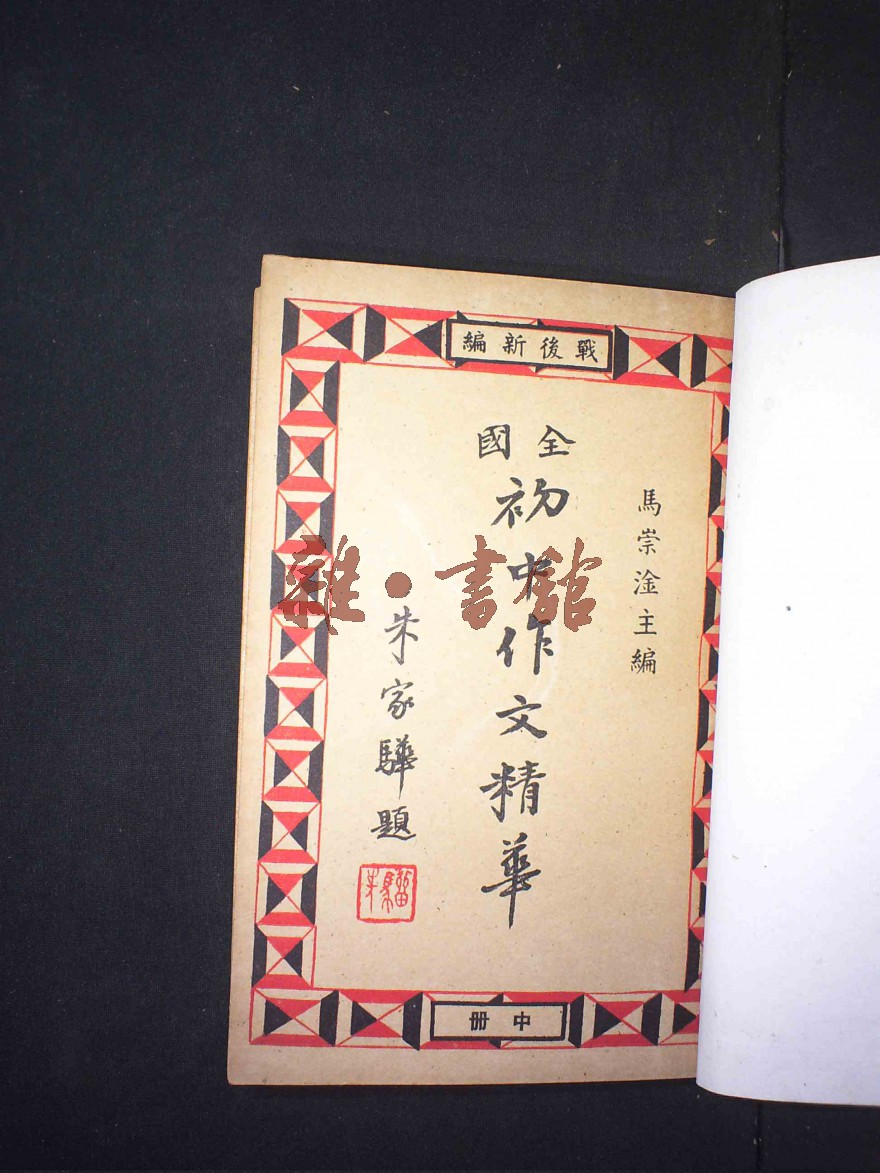 戰後新編
馬崇淦主編
全國
初中作文精華
朱家驊題
中册
雜·書館